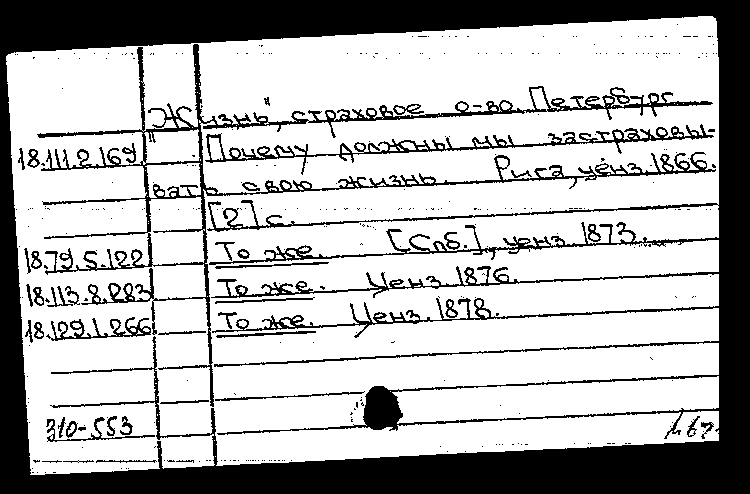 "Жизнь", страховое о-во. Петербург
18.111.2.169. Почему должны мы застраховы-
вать свою жизнь. Рига, ценз. 1866.
[2] с.
18.79.5.122 То же. [Спб.], ценз. 1873.
18.113.8.283 То же. Ценз. 1876.
18.129.1.266 То же. Ценз. 1878.
310-553